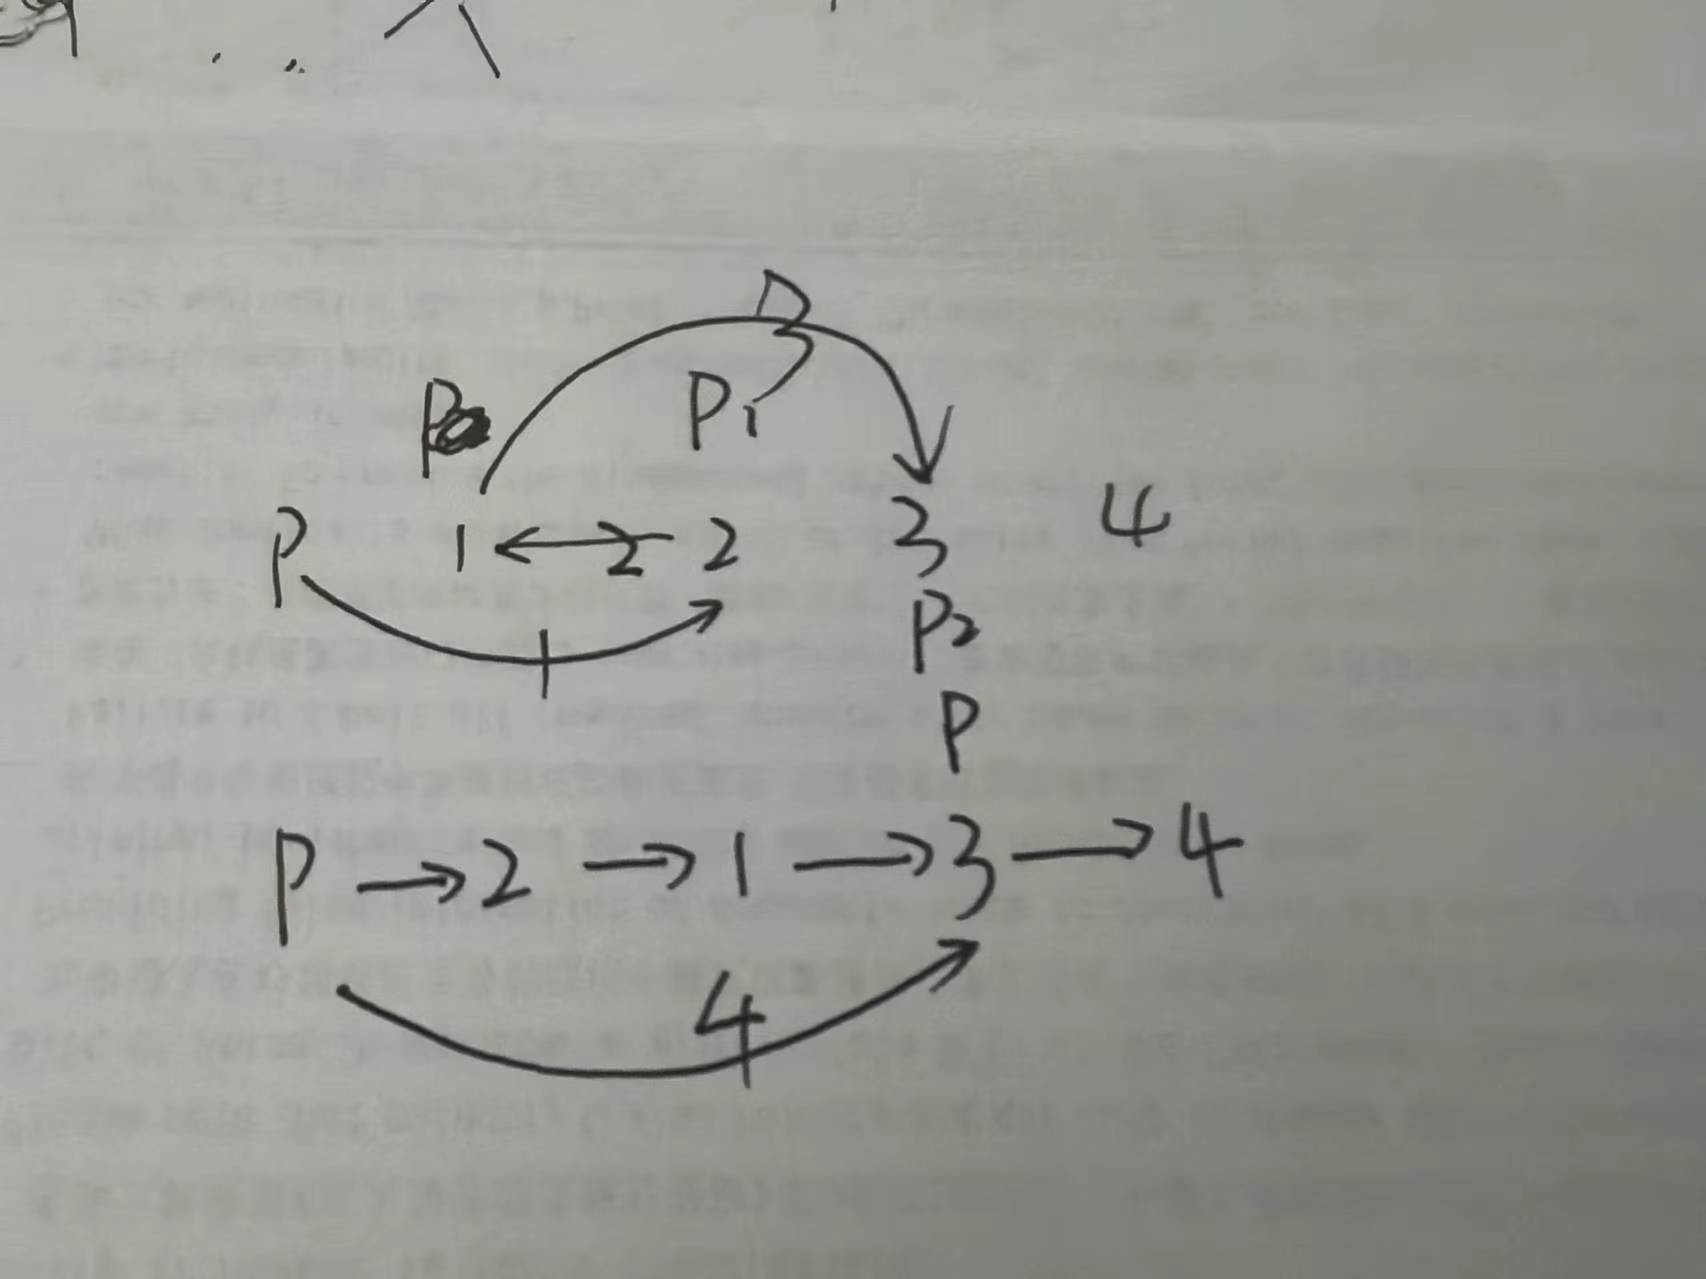 3
P P1
P 1 ← 2 2 3 4
1
P2
P
P → 2 → 1 → 3 → 4
4